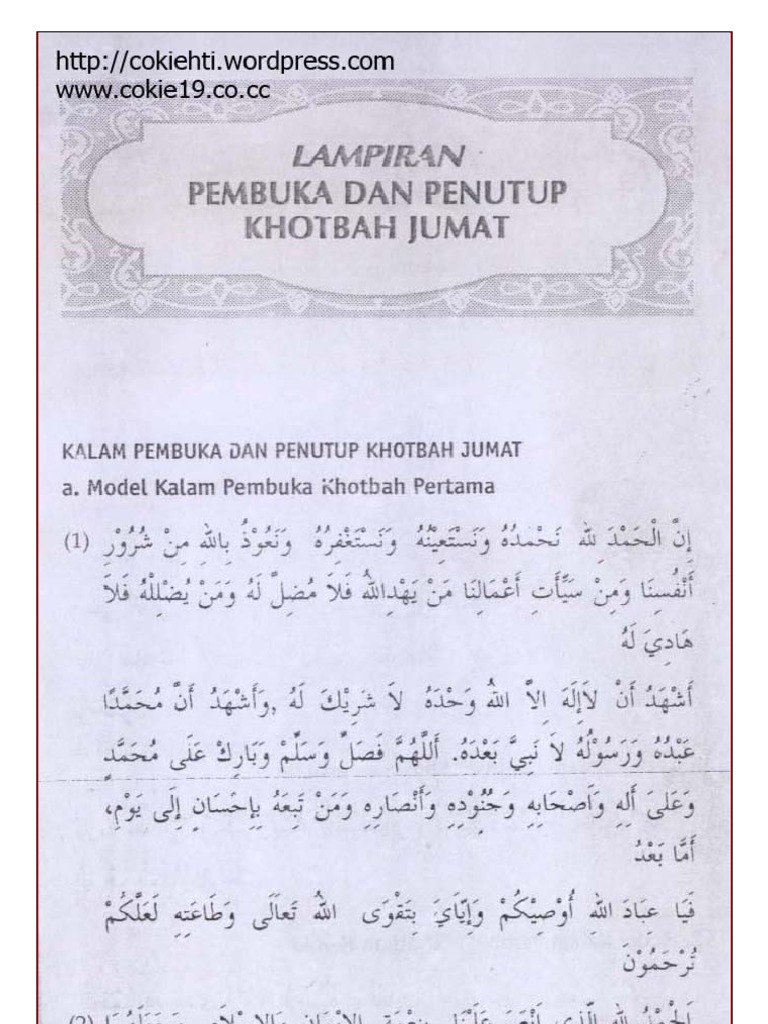 http://cokiehti.wordpress.com
www.cokie19.co.cc
LAMPIRAN
PEMBUKA DAN PENUTUP
KHOTBAH JUMAT
KALAM PEMBUKA DAN PENUTUP KHOTBAH JUMAT
a. Model Kalam Pembuka Khotbah Pertama
(1) إِنَّ الْحَمْدَ لِلهِ نَحْمَدُهُ وَنَسْتَعِيْنُهُ وَنَسْتَغْفِرُهُ وَنَعُوْذُ بِاللهِ مِنْ شُرُوْرِ
أَنْفُسِنَا وَمِنْ سَيِّأَتِ أَعْمَالِنَا مَنْ يَهْدِاللهُ فَلاَ مُضِلَّ لَهُ وَمَنْ يُضْلِلْهُ فَلاَ
هَادِيَ لَهُ
أَشْهَدُ أَنْ لاَإِلَهَ اِلاَّ اللهُ وَحْدَهُ لاَ شَرِيْكَ لَهُ ,وَأَشْهَدُ أَنَّ مُحَمَّدًا
عَبْدُهُ وَرَسُوْلُهُ لاَ نَبِيَّ بَعْدَهُ. أَللَّهُمَّ فَصَلِّ وَسَلِّمْ وَبَارِكْ عَلَى مُحَمَّدٍ
وَعَلَىَ أَلِهِ وَاَصْحَابِهِ وَجُنُوْدِهِ وَأَنْصَارِهِ وَمَنْ تَبِعَهُ بِإِحْسَانٍ إِلَى يَوْمِ،
أَمَّا بَعْدُ
فَيَا عِبَادَ اللهِ أُوْصِيْكُمْ وَإِيَّايَ بِتَقْوَى اللهُ تَعَالَى وَطَاعَتِهِ لَعَلَّكُمْ
تُرْحَمُوْنَ